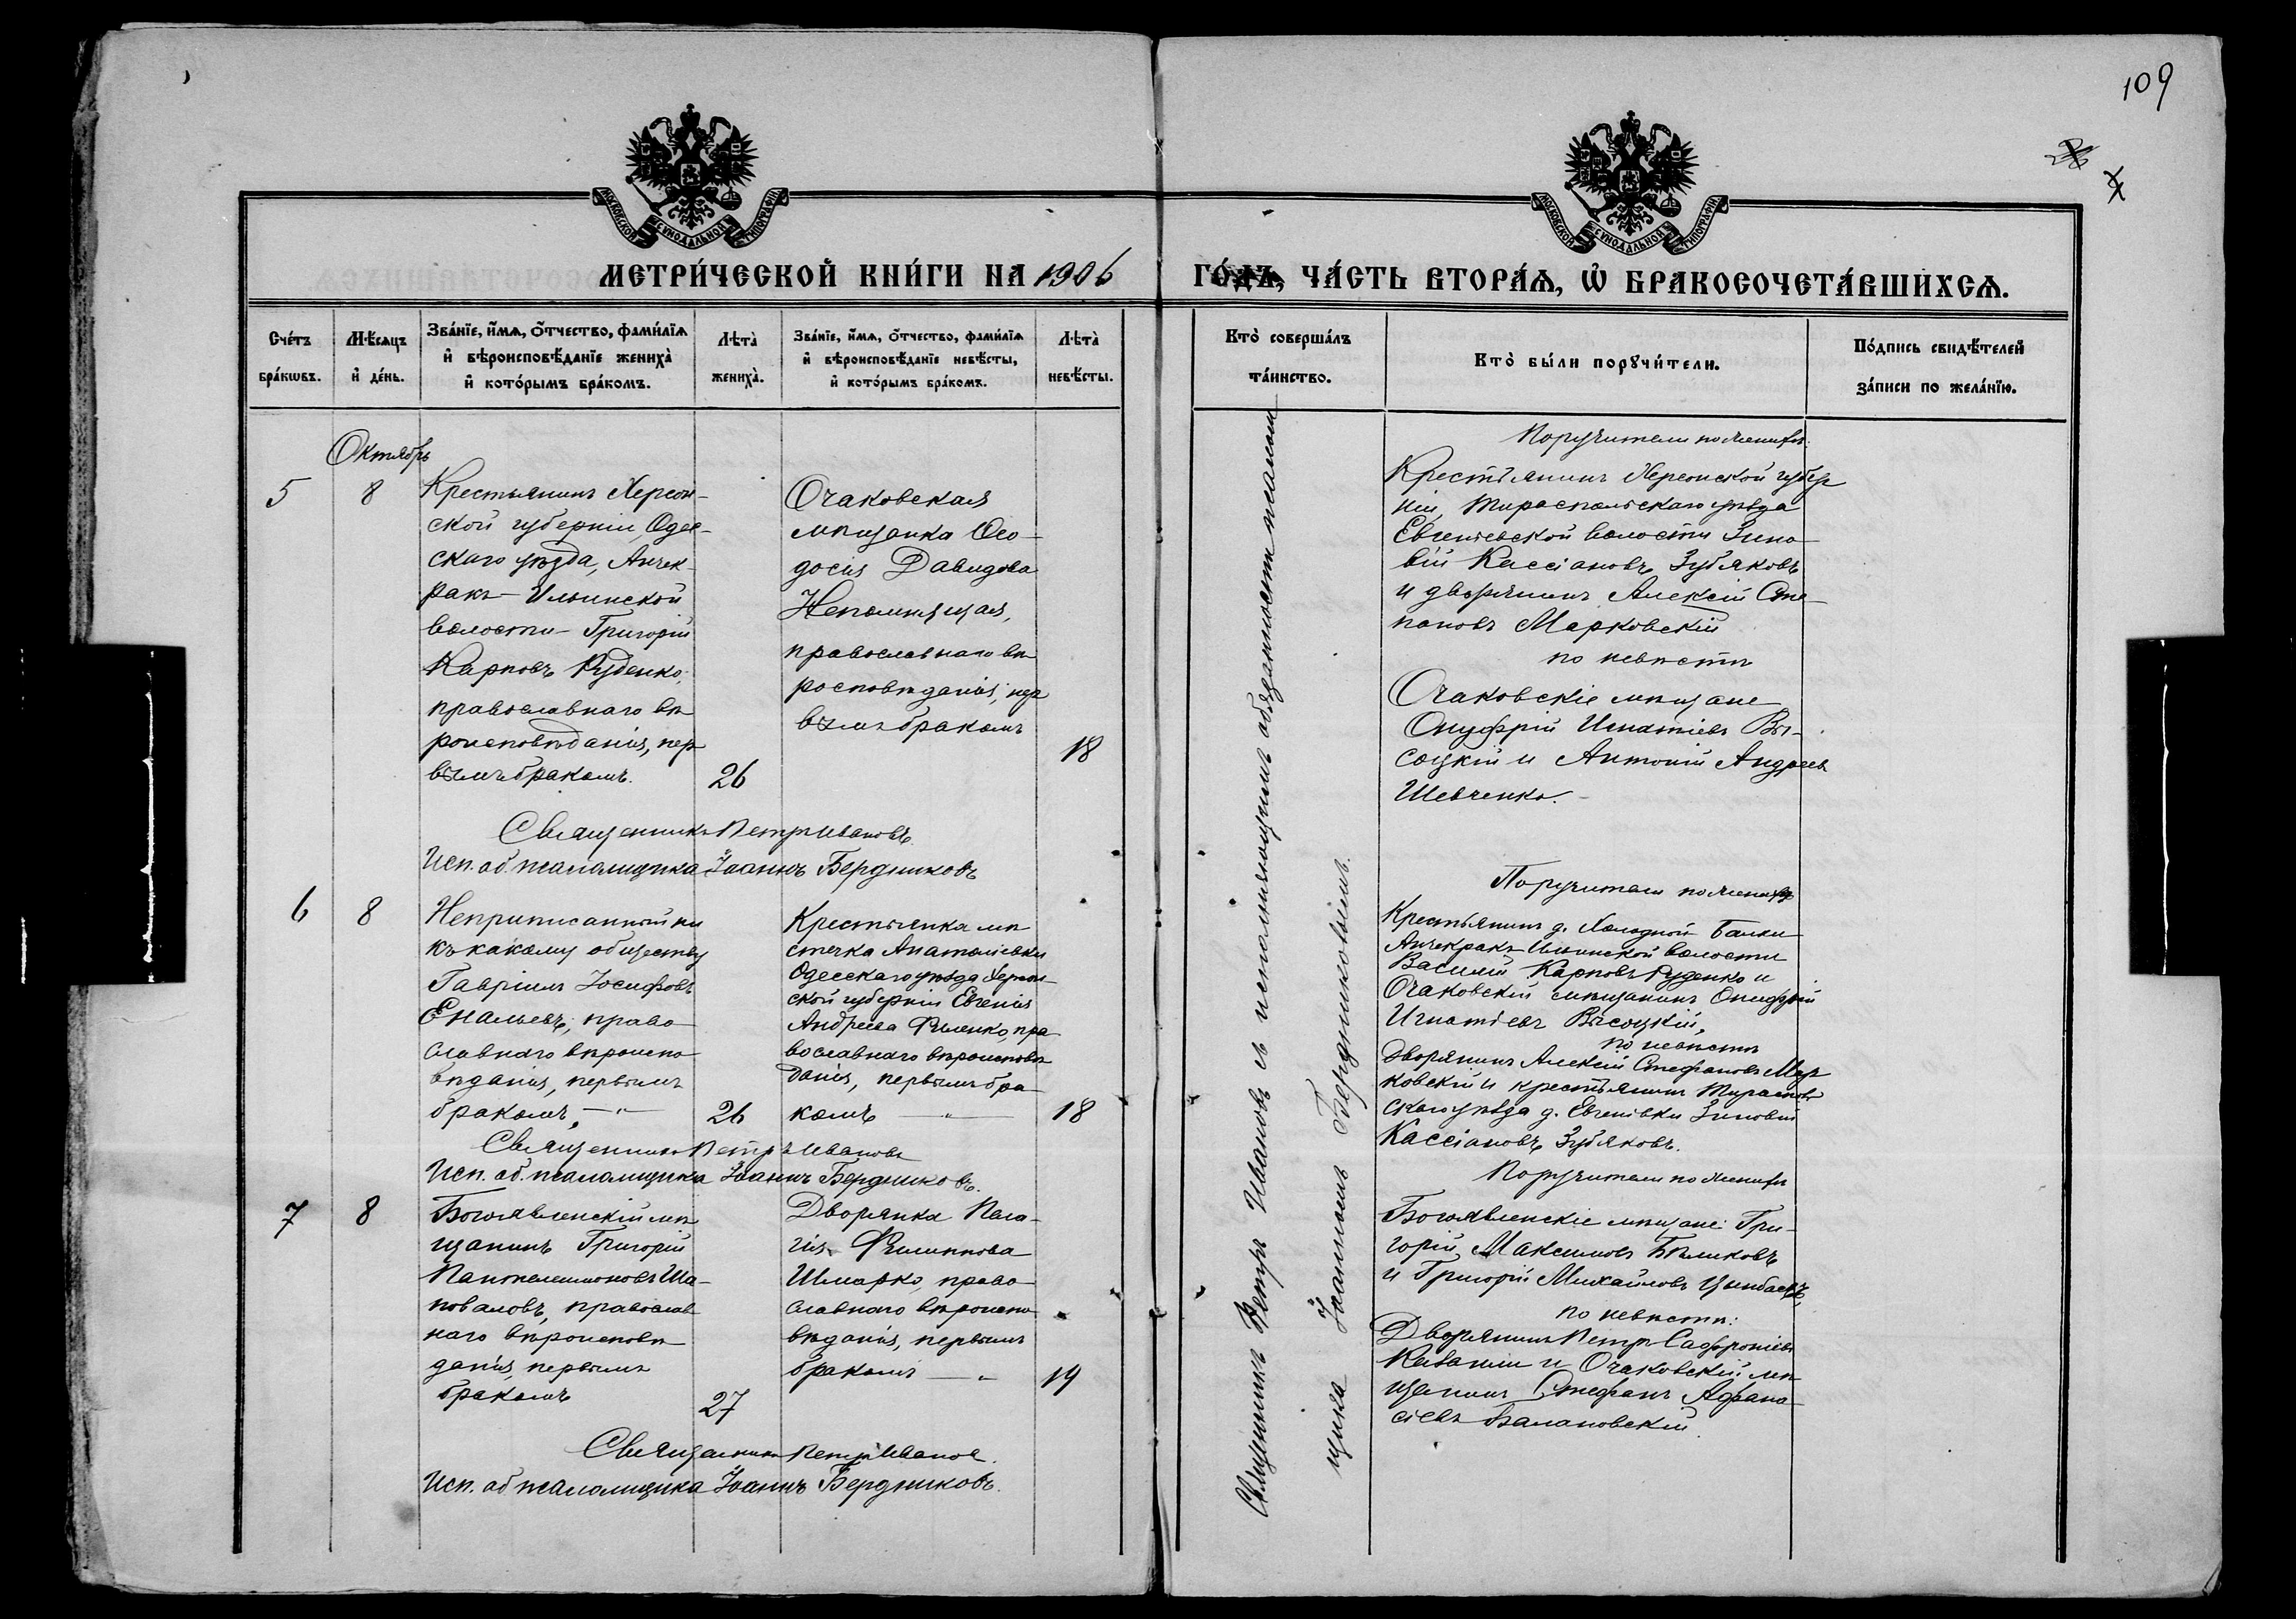 109
МОСКОВСКОЙ СУНОДАЛЬНОЙ ТИПОГРАФІИ
МОСКОВСКОЙ СУНОДАЛЬНОЙ ТИПОГРАФІИ
МЕТРИ́ЧЕСКОЙ КНИ́ГИ НА 1906
ГО́ДЪ, ЧА́СТЬ ВТОРА́Ѧ, Ѡ҆ БРАКОСОЧЕТА́ВШИХСѦ.
Сче́тъ бра́кѡвъ.
Мѣ́сѧцъ и҆ де́нь.
Зва́нїе, и҆́мѧ, о҆́тчество, фами́лїѧ и҆ вѣроисповѣ́данїе жениха̀ и҆ кото́рымъ бра́комъ.
Лѣта̀ жениха̀.
Зва́нїе, и҆́мѧ, о҆́тчество, фами́лїѧ и҆ вѣроисповѣ́данїе невѣ́сты, и҆ кото́рымъ бра́комъ.
Лѣта̀ невѣ́сты.
Кто̀ соверша́лъ та́инство.
Кто̀ бы́ли порꙋчи́тели.
По́дпись свидѣ́телей за́писи по жела́нїю.
Октябрь
5
8
Крестьянинъ Херсон-
ской губерніи, Одес-
скаго уѣзда, Анчек-
ракъ-Ильинской
волости Григорій
Карповъ Руденко,
православнаго вѣ
роисповѣданія, пер
вымъ бракомъ.
26
Очаковская
мѣщанка Ѳео-
досія Давидова
Непомнящая,
православнаго вѣ
роисповѣданія, пер
вымъ бракомъ
18
Священникъ Петръ Ивановъ.
Исп. об. псаломщика Іоаннъ Бердниковъ
6
8
Неприписанный ни
къ какому обществу
Гавріилъ Іосифовъ
Енальевъ, право
славнаго вѣроиспо
вѣданія, первымъ
бракомъ, —„—
26
Крестьянка мѣ
стечка Анатольевки
Одесскаго уѣзда Херсон-
ской губерніи Евгенія
Андреева Филенко, пра
вославнаго вѣроисповѣ
данія, первымъ бра
комъ —„—
18
Священникъ Петръ Ивановъ
Исп. об. псаломщика Іоаннъ Бердниковъ.
7
8
Богоявленскій мѣ
щанинъ Григорій
Пантелеимоновъ Ша-
поваловъ, православ
наго вѣроисповѣ
данія, первымъ
бракомъ
27
Дворянка Пела-
гія Филиппова
Шмарко, право
славнаго вѣроиспо
вѣданія, первымъ
бракомъ —„
19
Священникъ Петръ Ивановъ.
Исп. об псаломщика Іоаннъ Бердниковъ.
Священникъ Петръ Ивановъ съ исполняющимъ обязанности псалом
щика Іоанномъ Бердниковымъ.
Поручители по женихѣ:
Крестьянинъ Херсонской губер
ніи, Тираспольскаго уѣзда
Евгеньевской волости Зино
вій Кассіановъ Зубяковъ
и дворянинъ Алексій Сте-
пановъ Марковскій
по невѣстѣ
Очаковскіе мѣщане
Онуфрій Игнатіевъ Вы-
соцкій и Антоній Андреевъ
Шевченко.
Поручители по женихѣ
Крестьянинъ д. Холодной Балки
Анчекракъ Ильинской волости
Василій Карповъ Руденко и
Очаковскій мѣщанинъ Онуфрій
Игнатіевъ Высоцкій,
по невѣстѣ
Дворянинъ Алексій Стефановъ Мар
ковскій и крестьянинъ Тирасполь
скаго уѣзда д. Евгеніевки Зиновій
Кассіановъ Зубяковъ.
Поручители по женихѣ
Богоявленскіе мѣщане: Гри-
горій Максимовъ Бѣликовъ
и Григорій Михайловъ
по невѣстѣ:
Дворянинъ Петръ Софроніевъ
и Очаковскій мѣ
щанинъ Стефанъ Афана
сіевъ Балановскій.